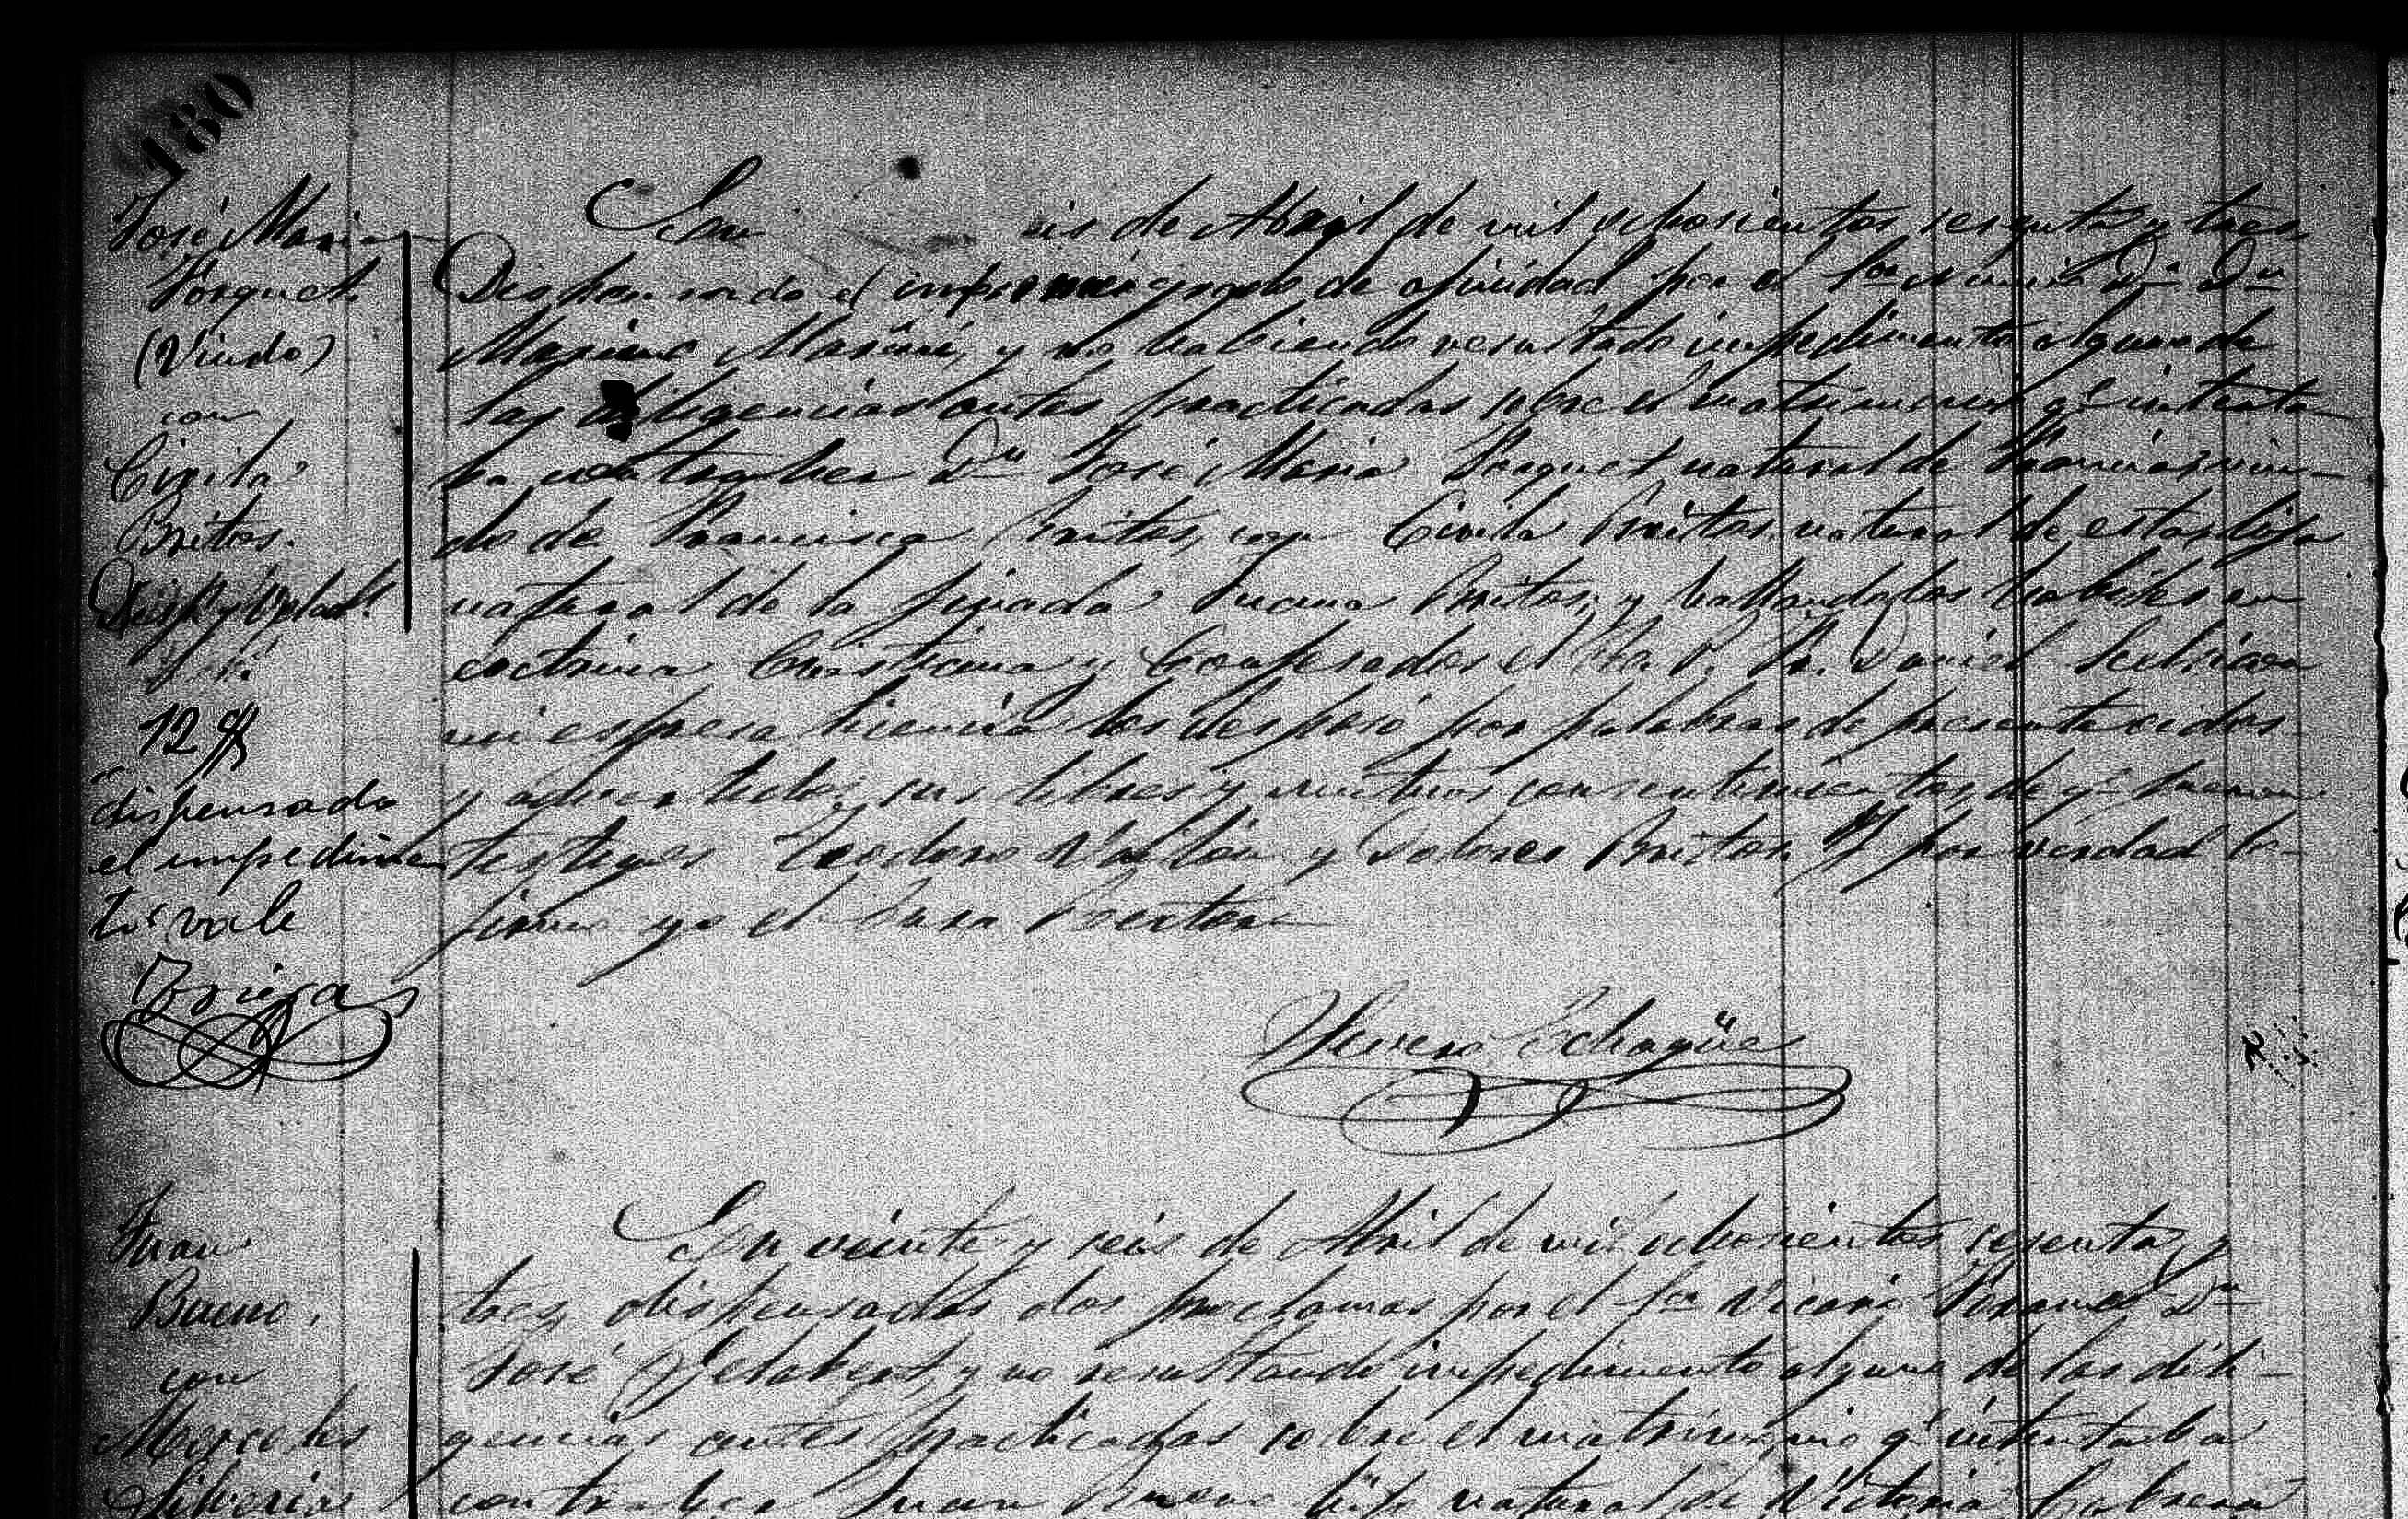 180
José Maria
Forquet
(Viudo)
con
Cirila
Britos.
12 
dispensado
el impedimen
to: vale
En eis de Abril de mil ochocientos sesenta y tres
Dispensado el grado de afinidad por el Sor Dn
Mariano y no habiendo resultado impedimento alguno de
las diligencias antes practicadas sobre el matrimonio qe intenta
ba contraher Dn José Maria Forquet natural de Francia, viu-
do de Francisca Britos, con Cirila Britos, natural de esta, hija
natural de la finada Britos, y hallandolos habiles en
doctrina Cristiana y Confesados, el Daniel
mi espresa licencia los desposó por palabras de presente oidos
y advertidos sus libres y mutuos consentimientos, de qe fueron
testigos Teodoro y Dolores Britos. Y por verdad lo
firmo yo el Cura Rector
Severo Echagüe
Juan
Bueno,
con
Mercedes
Silveria
En veinte y seis de Abril de mil ochocientos sesenta y
tres, dispensadas dos proclamas por el Sor Vicario Foraneo Dn
José Gelabert, y no resultando impedimento alguno de las dili-
gencias antes practicadas sobre el matrimonio qe intentaba
contraher Juan Bueno hijo natural de Victoria Cabrera